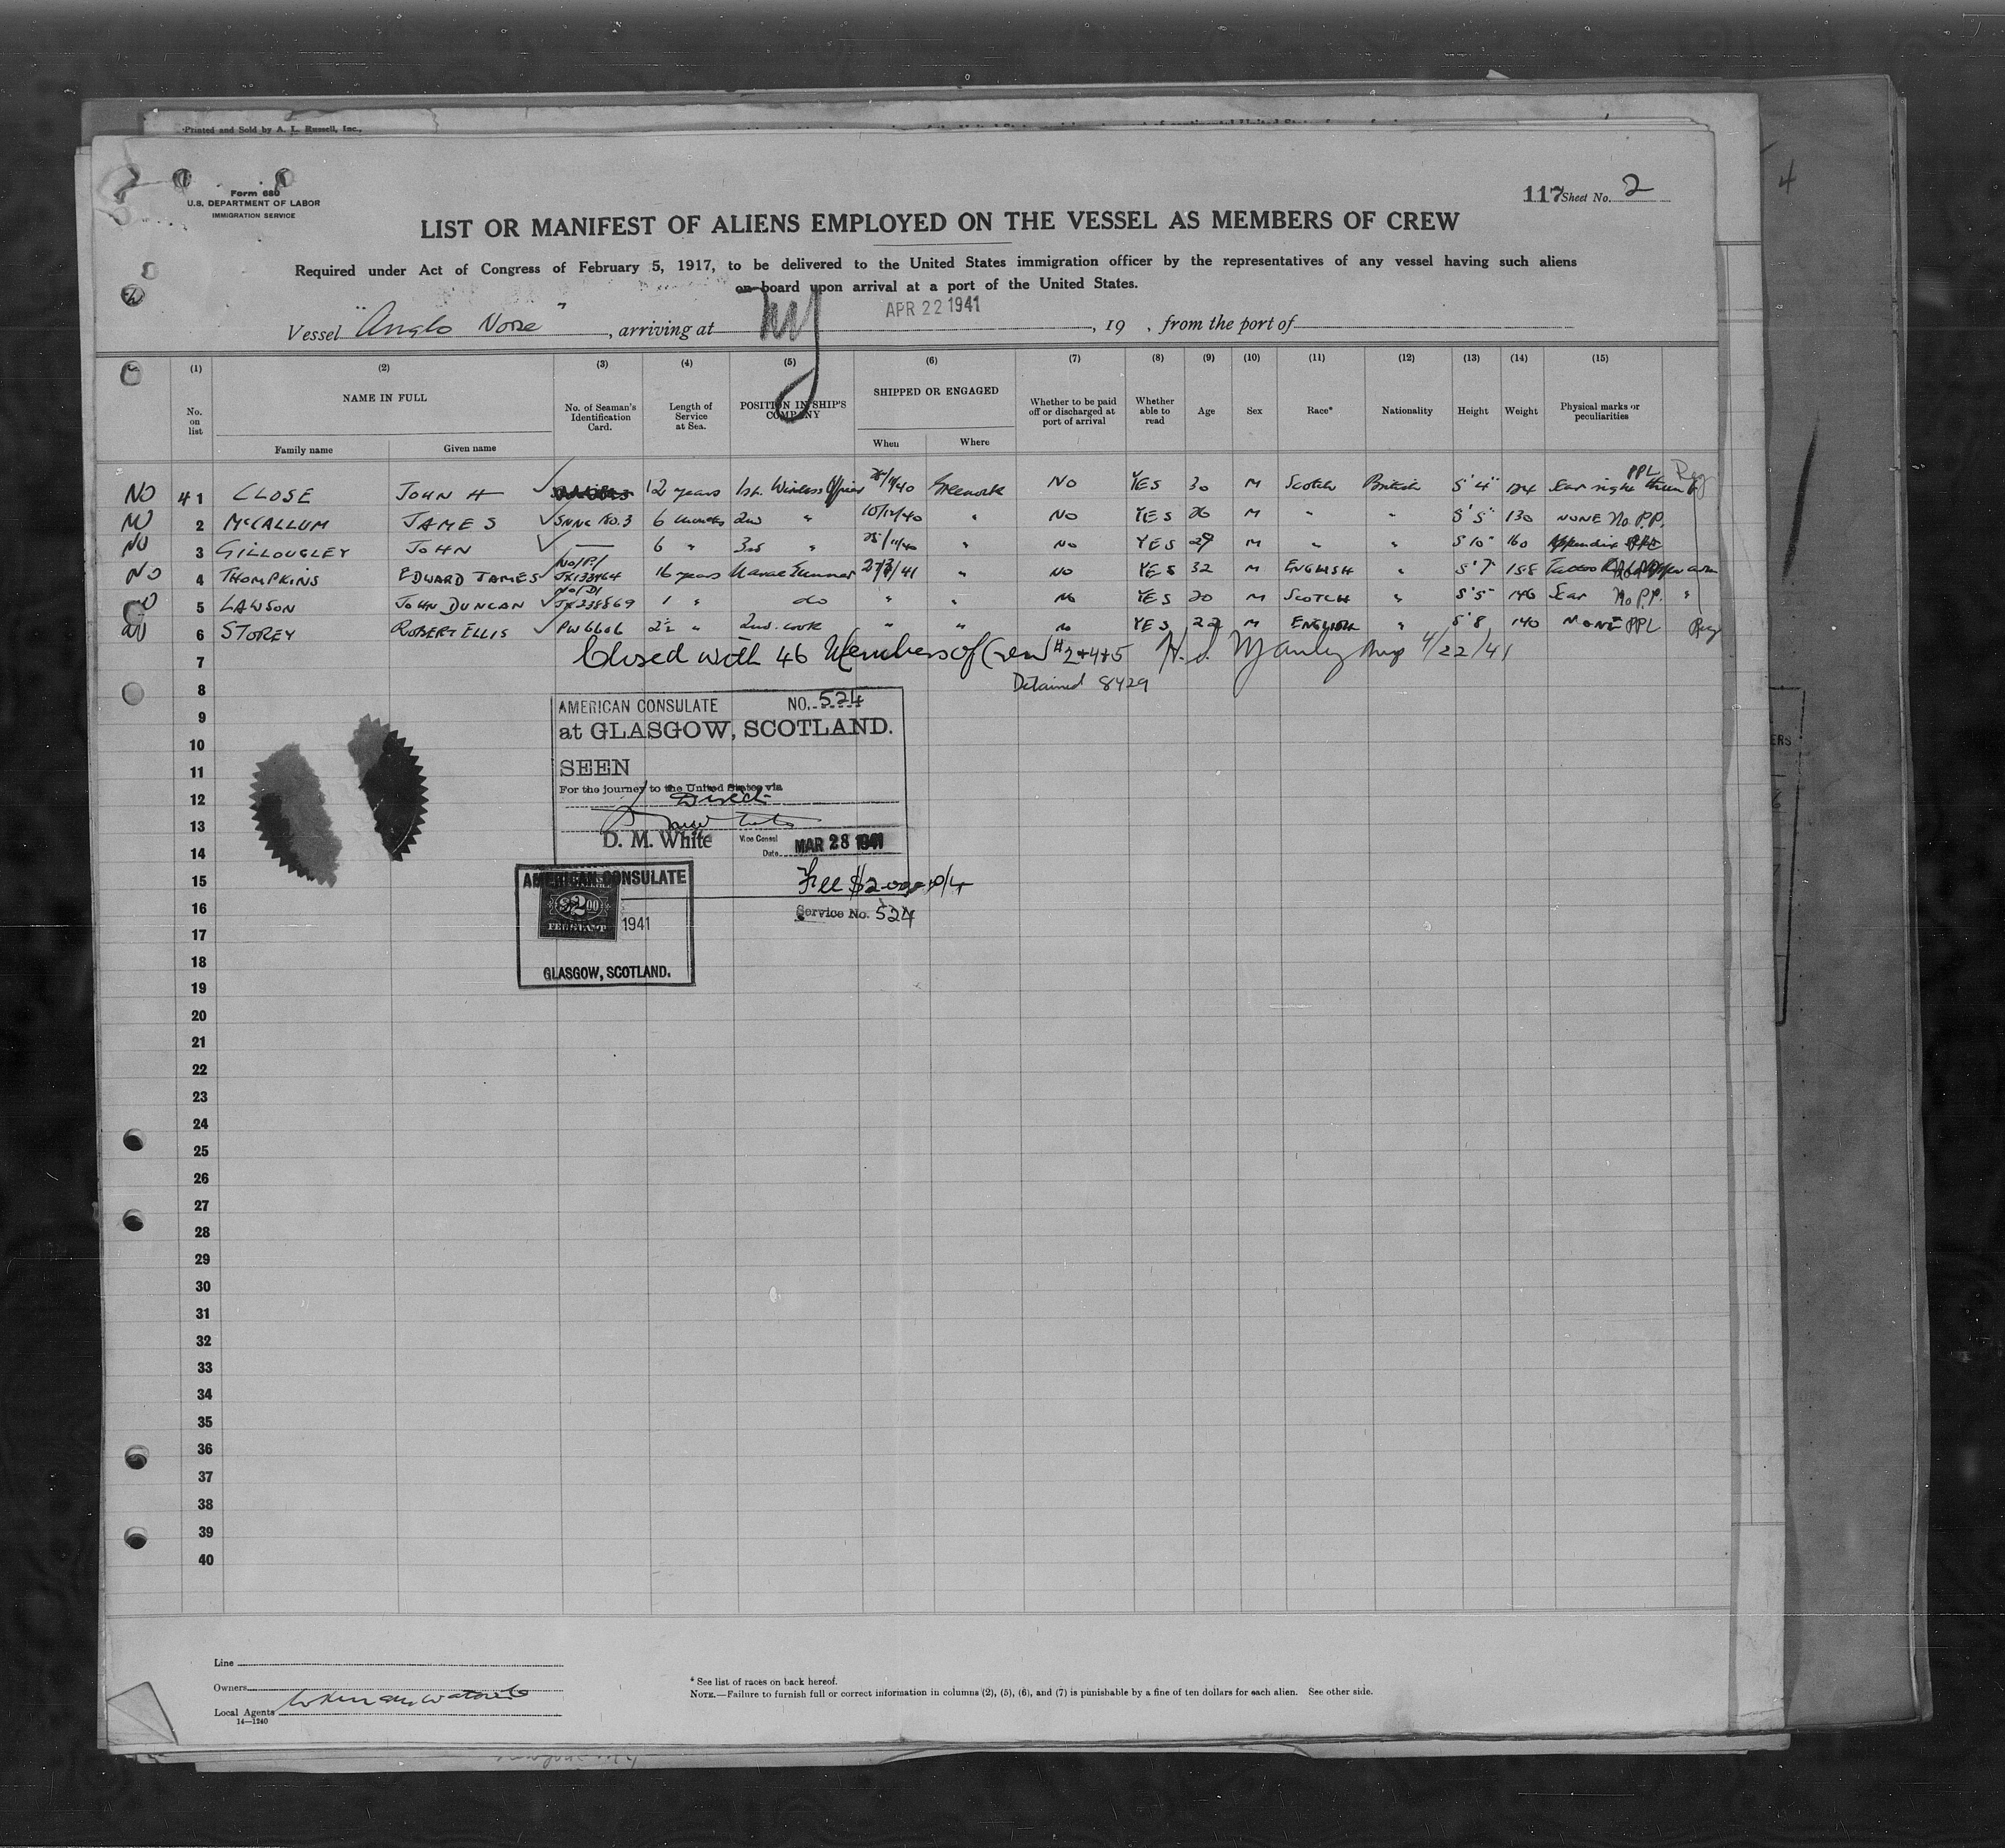 Printed and Sold by A. L. Russell, Inc.,
4
Form 680
U.S. DEPARTMENT OF LABOR
IMMIGRATION SERVICE
117 Sheet No. 2
LIST OR MANIFEST OF ALIENS EMPLOYED ON THE VESSEL AS MEMBERS OF CREW
Required under Act of Congress of February 5, 1917, to be delivered to the United States immigration officer by the representatives of any vessel having such aliens
on board upon arrival at a port of the United States.
Vessel "Anglo Norse", arriving at NY APR 22 1941, 19 , from the port of
(1) (2) (3) (4) (5) (6) (7) (8) (9) (10) (11) (12) (13) (14) (15)
No. on list
NAME IN FULL
Family name Given name
No. of Seaman's Identification Card.
Length of Service at Sea.
POSITION IN SHIP'S COMPANY
SHIPPED OR ENGAGED
When Where
Whether to be paid off or discharged at port of arrival
Whether able to read
Age Sex Race* Nationality Height Weight
Physical marks or peculiarities
NO 41 CLOSE JOHN H 12 years 1st. Wireless Officer Greenock NO YES 30 M Scotch British 5'4" 124 Scar right thumb PPL Reg
NO 2 McCALLUM JAMES SNNC NO. 3 6 months 2nd " 10/12/40 " NO YES 26 M " " 5'5" 130 NONE No P.P.
NO 3 GILLOUGLEY JOHN — 6 " 3rd " 25/11/40 " NO YES 29 M " " 5'10" 160 Appendix
NO 4 THOMPKINS EDWARD JAMES JX133464 16 years Naval Gunner 27/3/41 " NO YES 32 M ENGLISH " 5'7" 158 Tattoo
NO 5 LAWSON JOHN DUNCAN JX238869 1 " do " " NO YES 20 M SCOTCH " 5'5" 146 Scar No P.P. "
6 STOREY ROBERT ELLIS PW6606 2½ " 2nd. cook " " NO YES 22 M ENGLISH " 5'8 140 NONE PPL Reg
7 Closed with 46 Members of Crew #2+4+5 H. S. Manley Insp 4/22/41
8 Detained 8429
9
10
11
12
13
14
15
16
17
18
19
20
21
22
23
24
25
26
27
28
29
30
31
32
33
34
35
36
37
38
39
40
AMERICAN CONSULATE NO. 524
at GLASGOW, SCOTLAND.
SEEN
For the journey to the United States via
Direct
D. M. White Vice Consul
Date MAR 28 1941
Fee $2.00
Service No. 524
AMERICAN CONSULATE
$2.00
FEE STAMP
1941
GLASGOW, SCOTLAND.
ERS
Line
Owners
Local Agents
14—1240
* See list of races on back hereof.
NOTE.—Failure to furnish full or correct information in columns (2), (5), (6), and (7) is punishable by a fine of ten dollars for each alien. See other side.